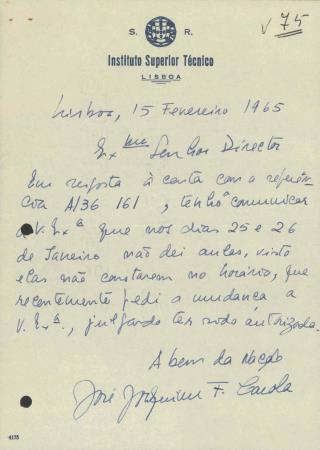 S. R.
√ 75
Instituto Superior Técnico
LISBOA
Lisboa, 15 Fevereiro 1965
Ex.mo Senhor Director
Em resposta à carta com a referên
cia A/36 161, tenho a comunicar
a V. Ex.a que nos dias 25 e 26
de Janeiro não dei aulas, visto
elas não constarem no horário, que
recentemente pedi a mudança a
V. Ex.a, julgando ter sido autorizada.
A bem da Nação
José Joaquim F.
4175